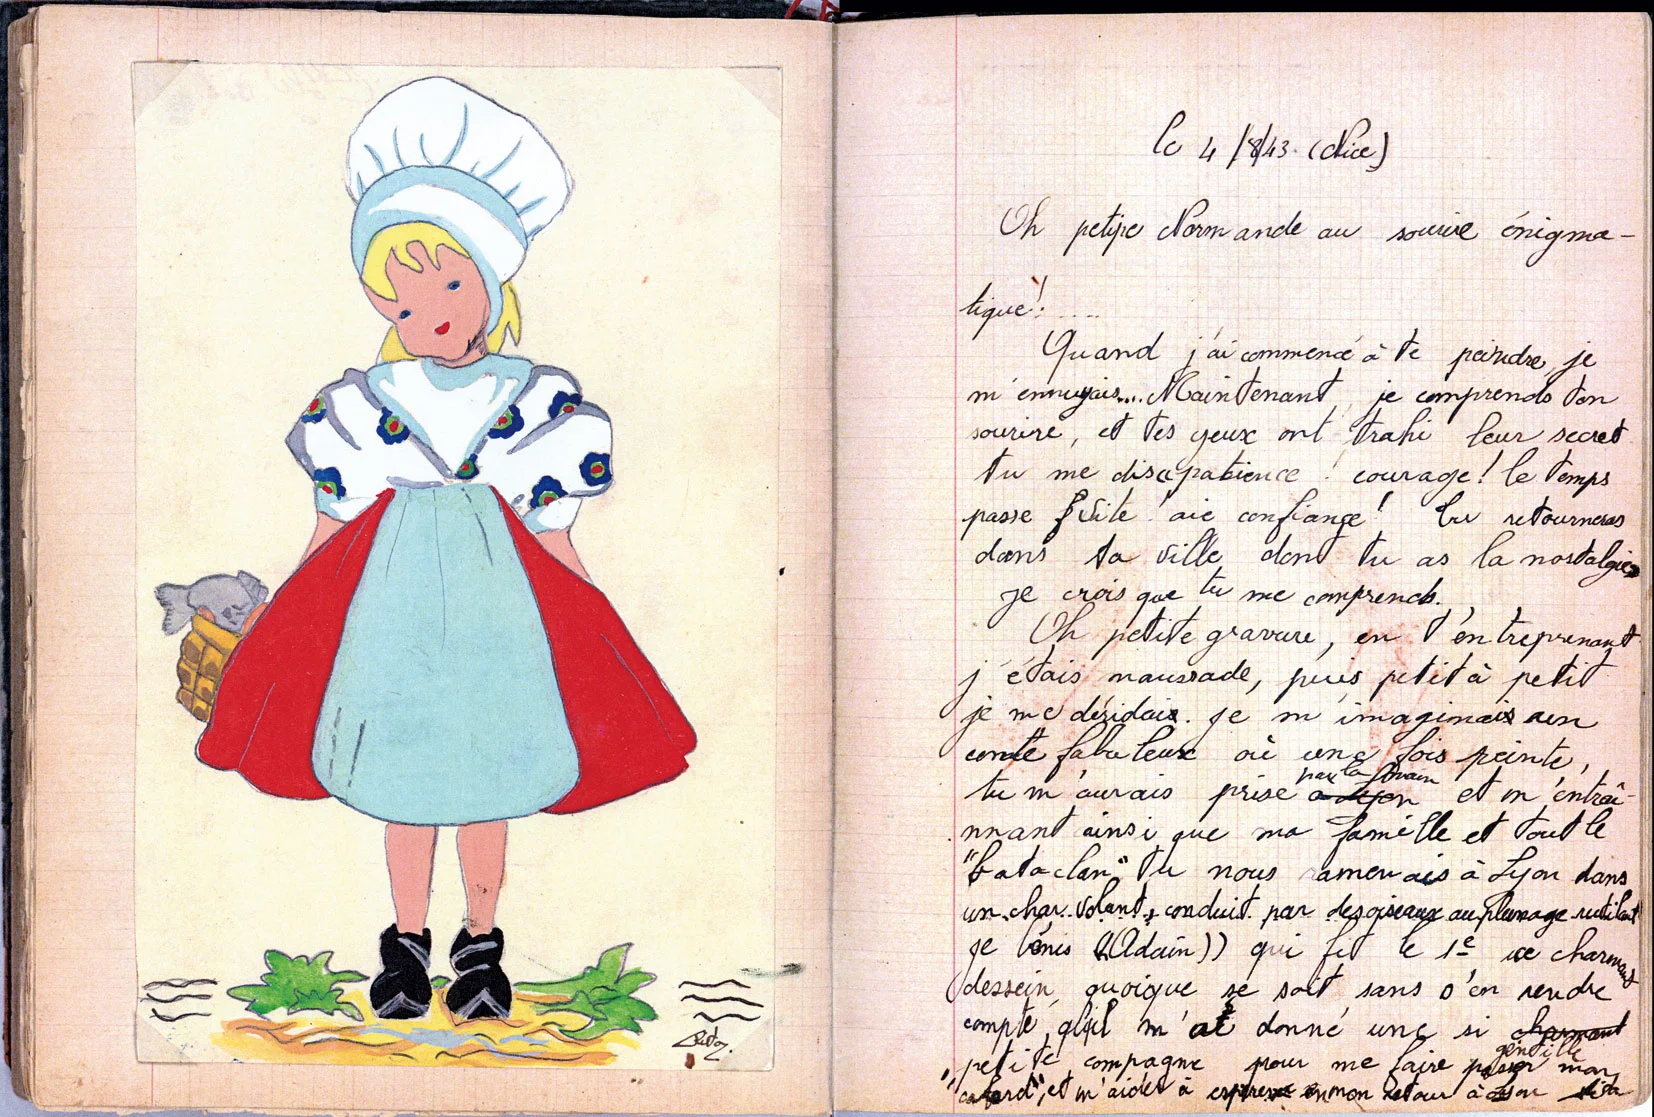 le 4/8/43. (Nice)
Oh petipe Normande au sourire énigma-
tique! ....
Quand j'ai commencé à te peindre, je
m'ennuyais.... Maintenant, je comprends ton
sourire, et tes yeux ont trahi leur secret
tu me dis patience! courage! le temps
passe vite! aie confiance! tu retourneras
dans ta ville dont tu as la nostalgie
je crois que tu me comprends.
Oh petite gravure, en t'entreprenant
j'étais maussade, puis petit à petit
je me déridais. je m'imaginais un
conte fabuleux où une fois peinte,
tu m'aurais prise par la main et m'entraî-
nnant ainsi que ma famille et tout le
"bataclan" tu nous ramenais à Lyon dans
un char volant, conduit par des oiseaux au plumage rutilant
je bénis ((Adain)) qui fit le 1e ce charmant
dessein, quoique se soit sans s'en rendre
compte, qu'il m'ait donné une si charmant gentille
petite compagne pour me faire passer mon
"cafard", et m'aider à esperer en mon retour à Lyon